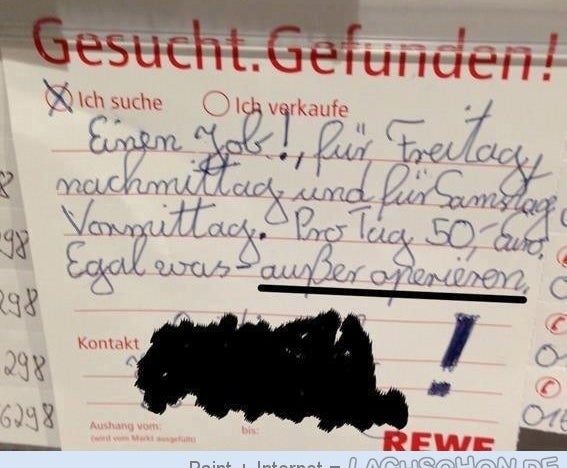 Gesucht.Gefunden!
Ich suche Ich verkaufe
Einen Job!, für Freitag
nachmittag und für Samstag
Vormittag. Pro Tag 50,- Euro.
Egal was - außer operieren
!
Kontakt
Aushang vom: bis:
(wird vom Markt ausgefüllt)
REWE
298
298
298
6298
Paint + Internet = LACHSCHON.DE